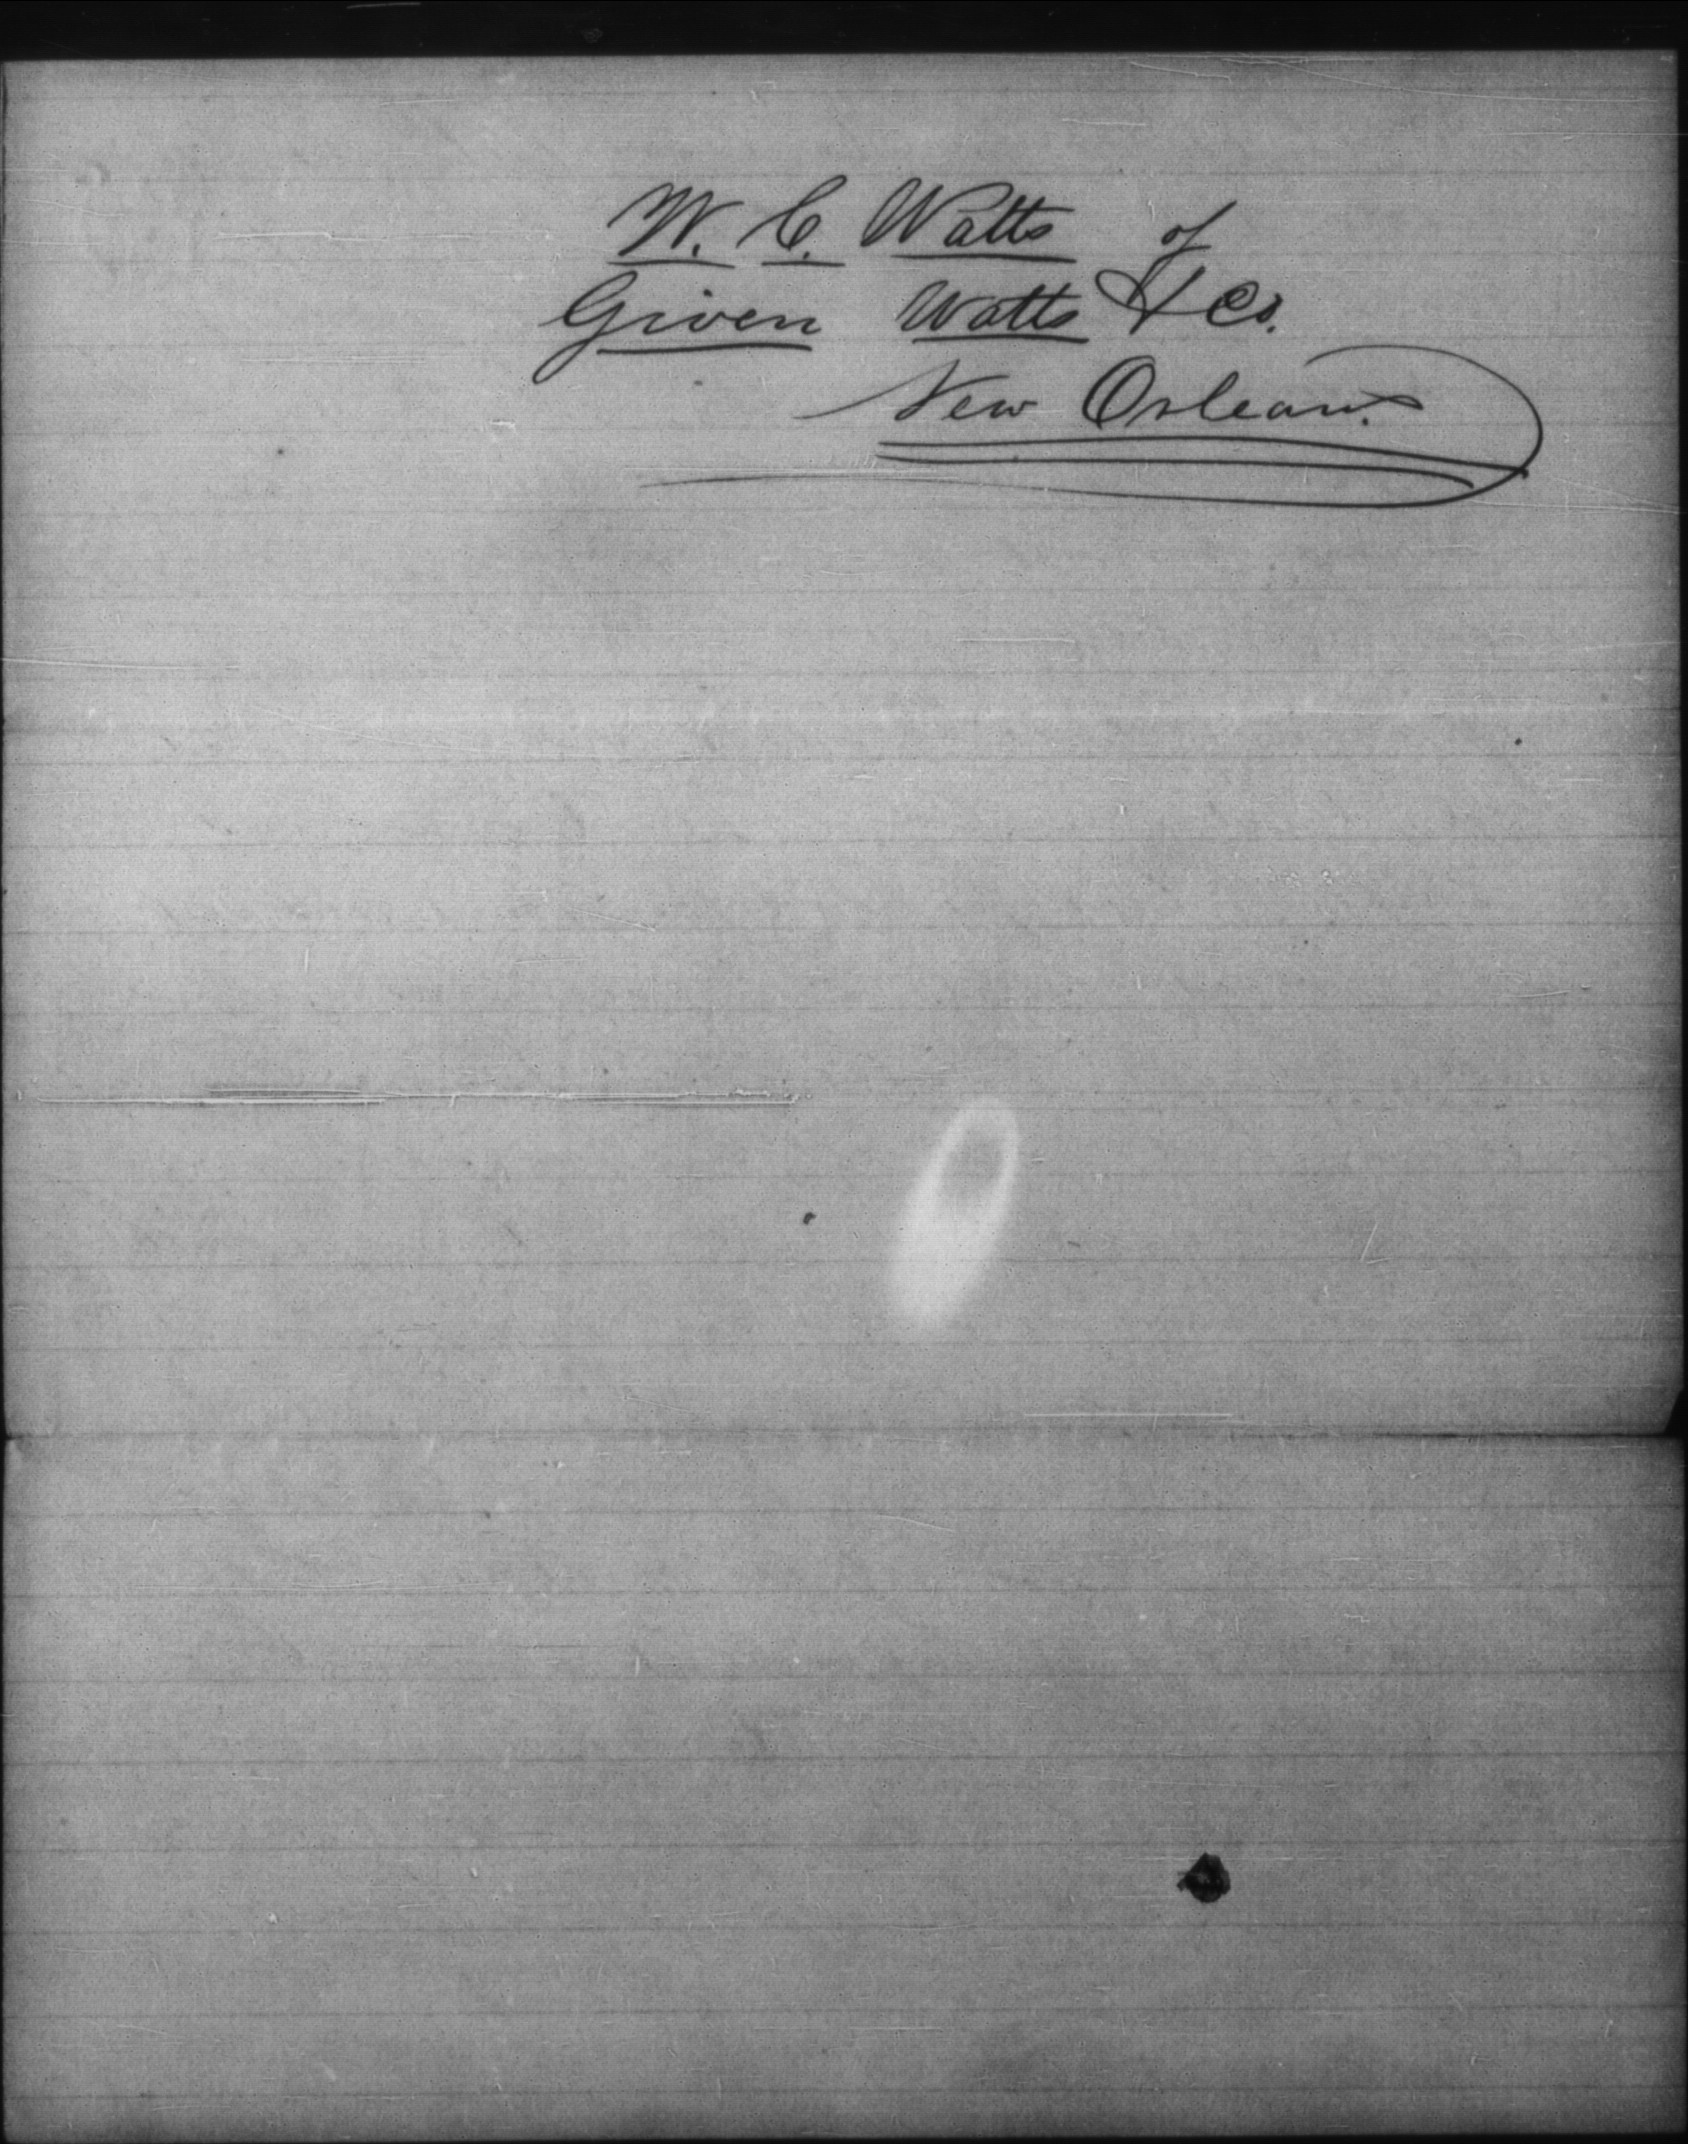 W. C. Watts of
Given Watts & Co.
New Orleans.